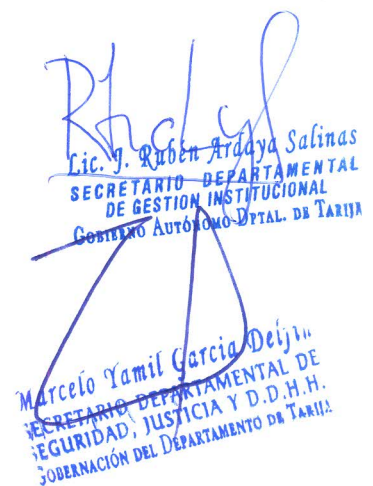 Lic. J. Rubén Ardaya Salinas
SECRETARIO DEPARTAMENTAL
DE GESTION INSTITUCIONAL
GOBIERNO AUTÓNOMO DPTAL. DE TARIJA
Marcelo Yamil Garcia
SECRETARIO DEPARTAMENTAL DE
SEGURIDAD, JUSTICIA Y D.D.H.H.
GOBERNACIÓN DEL DEPARTAMENTO DE TARIJA